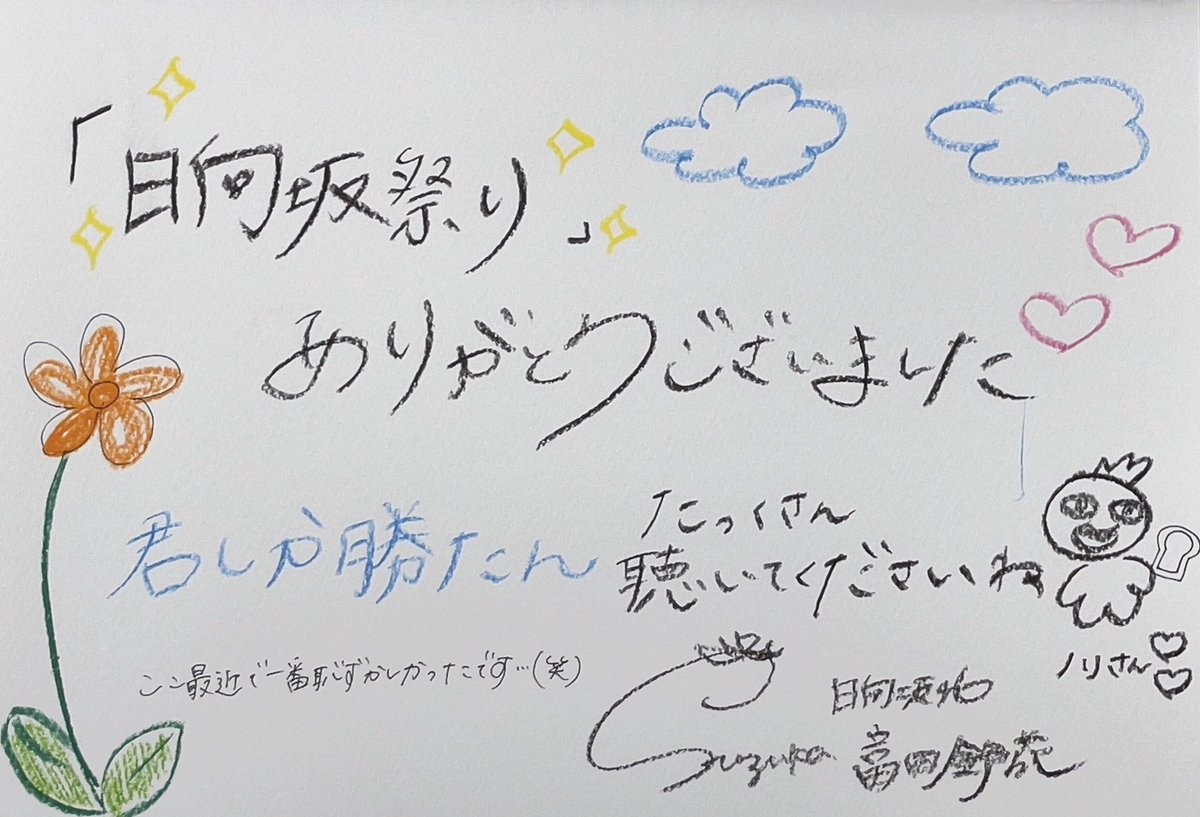 「日向坂祭り」
ありがとうございました
君しか勝たん
たっくさん
聴いてくださいね
ここ最近で一番恥ずかしかったです…(笑)
ノリさん
日向坂46
Suzuka 富田鈴花